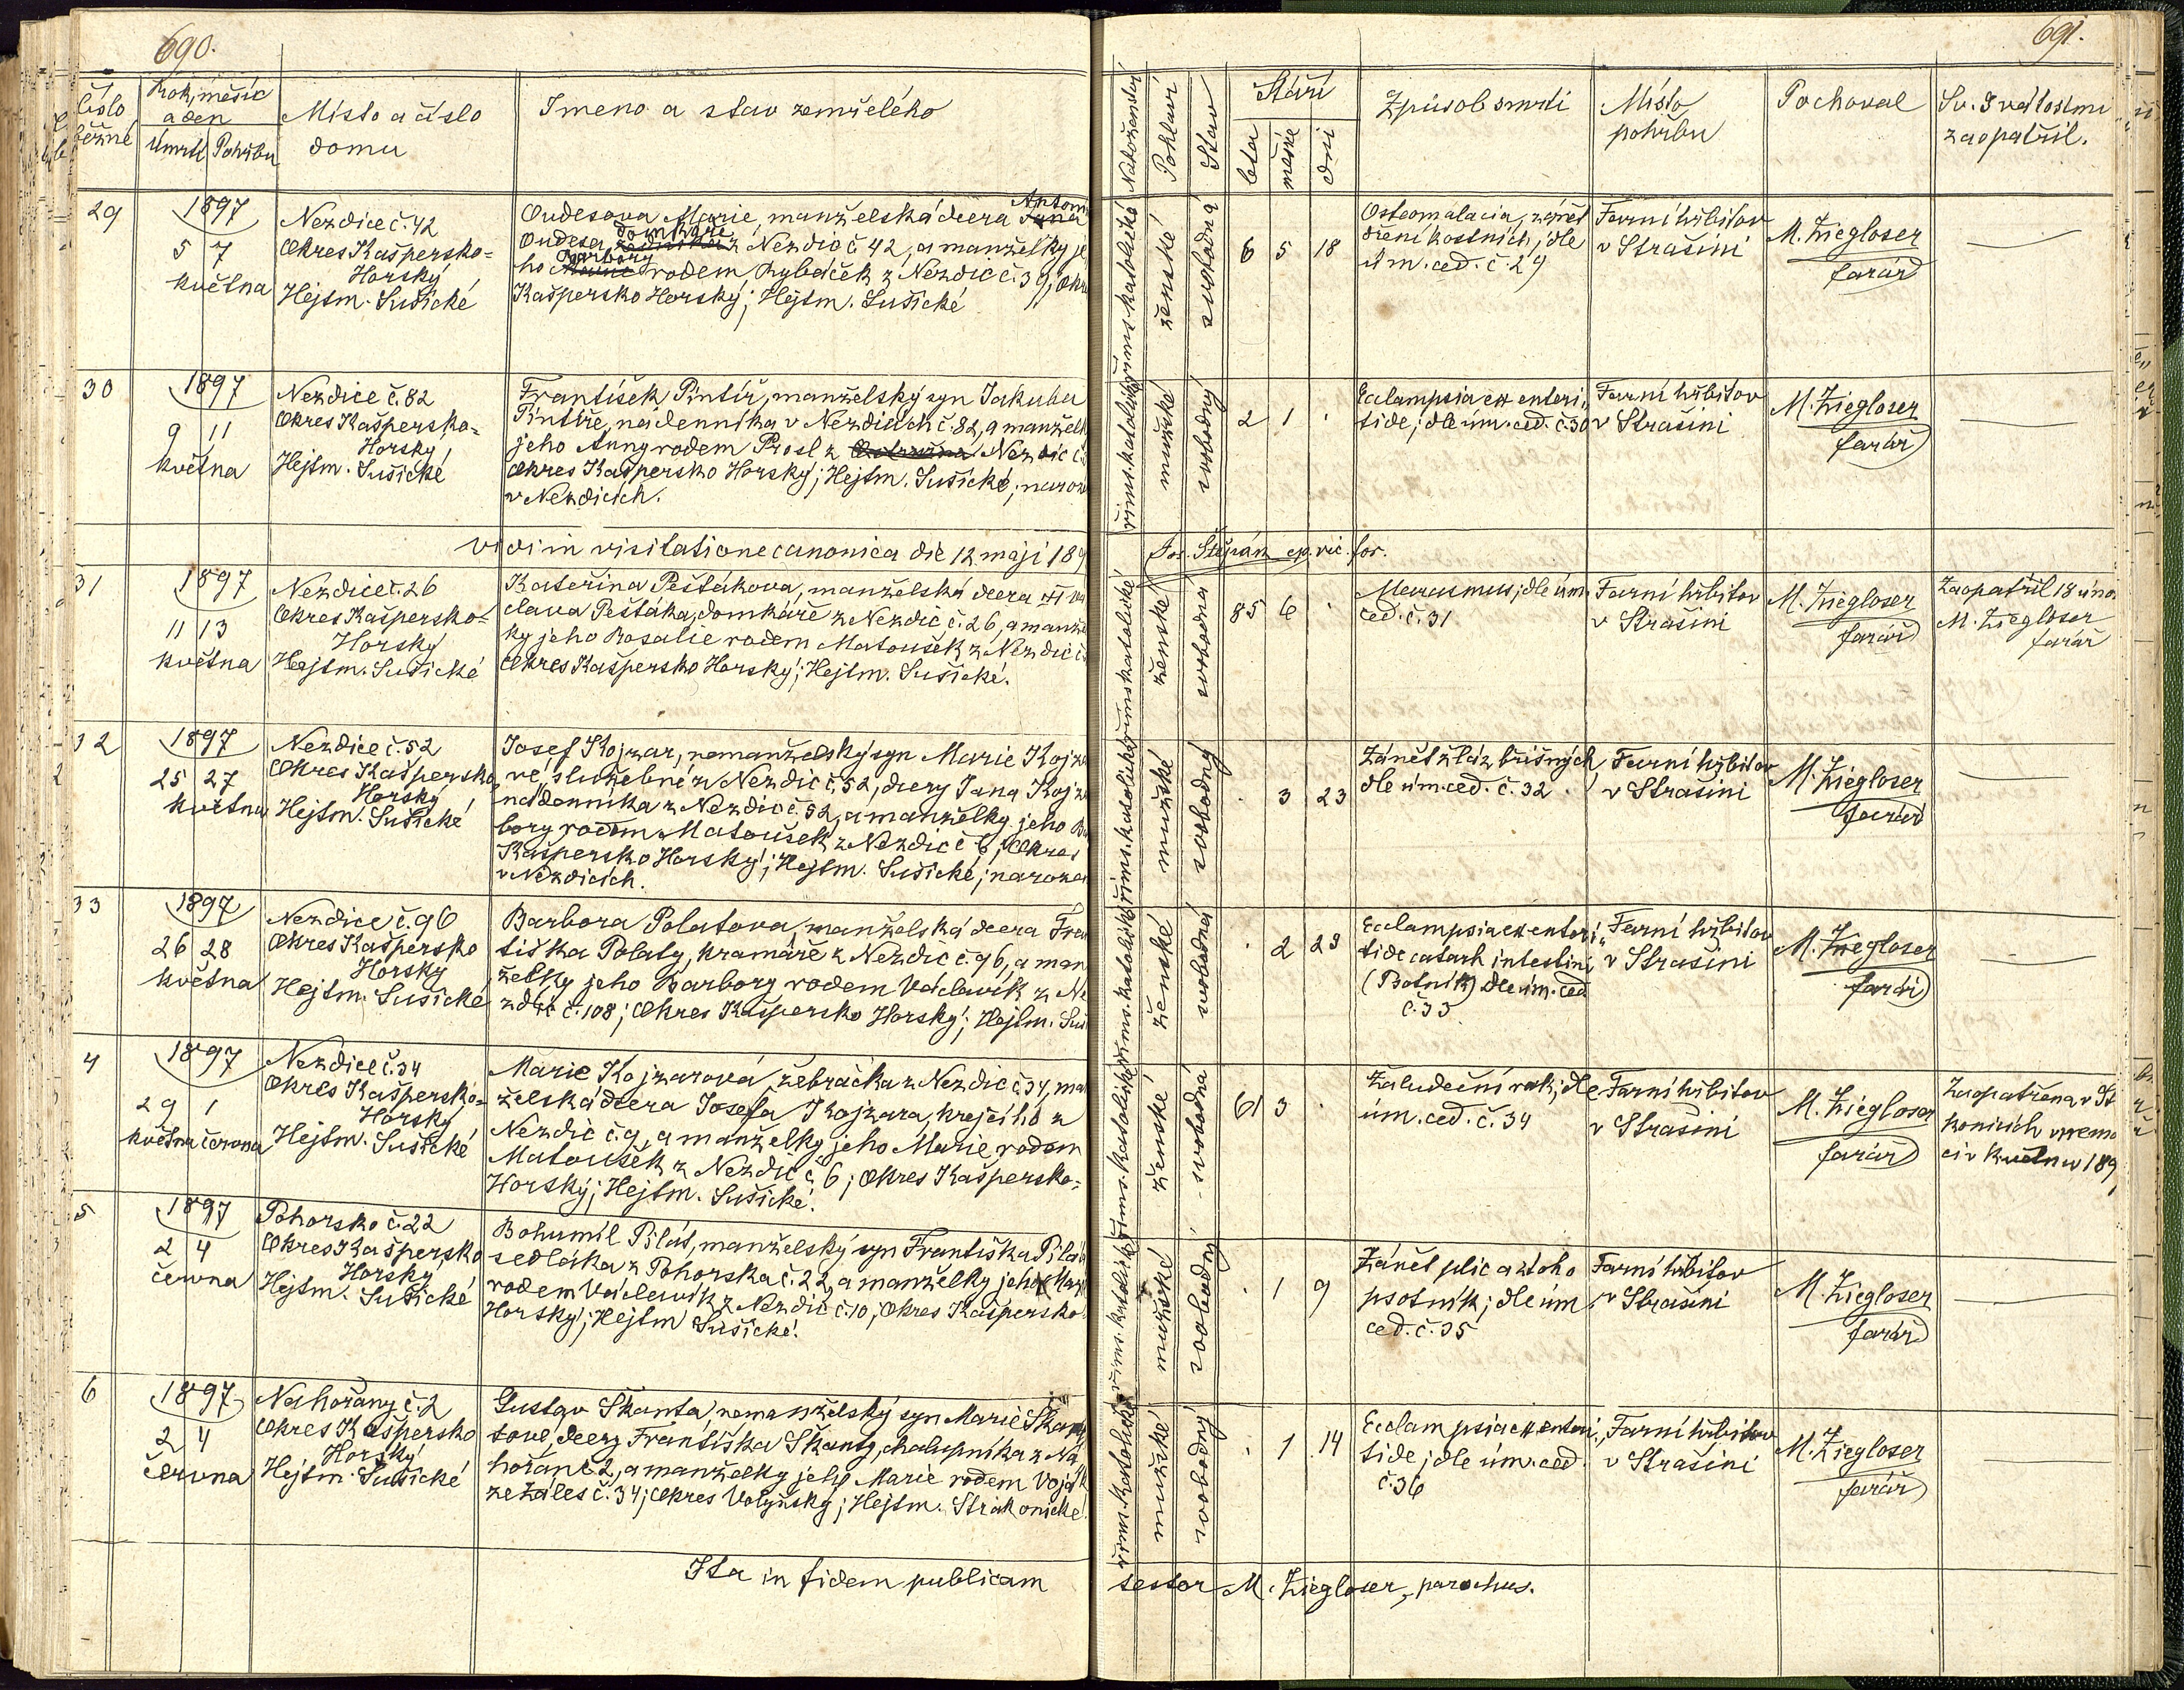 690.
Číslo běžné
Rok, měsíc a den
Úmrtí Pohřbu
Místo a číslo domu
Jmeno a stav zemřelého
29
1897
5 7
května
Nezdice č. 42
Okres Kašpersko-
Horský
Hejtm. Sušické
Oudesova Marie, manželská dcera Jana Anton
Oudesa, domkáře z Nezdic č 42, a manželky je
ho Barbory rodem Rybáček z Nezdic č. 39, Okr
Kašpersko Horský; Hejtm. Sušické
30
1897
9 11
května
Nezdice č. 82
Okres Kašpersko-
Horský,
Hejtm. Sušické
František Pintíř, manželský syn Jakuba
Pintíře, nádenníka v Nezdicích č. 82, a manžel
jeho Anny rodem Prosl z Nezdic č.
Okres Kašpersko Horský; Hejtm. Sušické; naroz
v Nezdicích.
vidi in visitatione canonica die 12. maji 189
31
1897
11 13
května
Nezdice č. 26
Okres Kašpersko-
Horský
Hejtm. Sušické
Kateřina Peštákova, manželská dcera
clava Peštáka, domkáře z Nezdic č. 26, a manže
ky jeho Rosalie rodem Matoušek z Nezdic č.
Okres Kašpersko Horský; Hejtm. Sušické.
32
1897
25 27
května
Nezdice č. 52
Okres Kašpersko
Horský
Hejtm. Sušické
Josef Kojzar, nemanželský syn Marie Kojza
ré, služebné z Nezdic č. 52, dcery Jana Kojza
nádenníka z Nezdic č. 52, a manželky jeho Ba
bory rodem Matoušek z Nezdic č 6; Okres
Kašpersko Horský; Hejtm. Sušické; narozen
v Nezdicích.
33
1897
26 28
května
Nezdice č. 96
Okres Kašpersko
Horský
Hejtm. Sušické
Barbora Polatova, manželská dcera Fran
tiška Polaty, kramáře z Nezdic č. 96, a man
želky jeho Barbory rodem Václavík z Ne
zdic č. 108; Okres Kašpersko Horský; Hejtm. Suš
4
1897
29 1
května června
Nezdice č. 34
Okres Kašpersko-
Horský
Hejtm. Sušické
Marie Kojzarová, žebračka z Nezdic č. 34, man
želská dcera Josefa Kojzara, krejčího z
Nezdic č. 9, a manželky jeho Marie rodem
Matoušek z Nezdic č 6; Okres Kašpersko-
Horský; Hejtm. Sušické.
5
1897
2 4
června
Pohorsko č. 22
Okres Kašpersko
Horský
Hejtm. Sušické
Bohumil Pilát, manželský syn Františka Pilát
sedláka z Pohorska č. 22, a manželky jeho Mar
rodem Václavík z Nezdic č. 10; Okres Kašpersko
Horský; Hejtm Sušické.
6
1897
2 4
června
Nahořany č. 2
Okres Kašpersko
Horský
Hejtm. Sušické
Gustav Skanta, nemanželský syn Marie Skan
tové, dcery Františka Skanty, chalupníka z Na
hořan č 2, a manželky jeho Marie rodem Vojt
ze Záles č. 34; Okres Volyňský; Hejtm. Strakonické
Ita in fidem publicam
691.
Náboženství
Pohlaví
Stav
Stáří
leta
měsíce
dni
Způsob smrti
Místo pohřbu
Pochoval
Sv. Svátostmi zaopatřil.
římskatolické
ženské
svobodná
6 5 18
Osteomalacia, zánět
dření kostních, dle
úm. ced. č. 29
Farní hřbitov
v Strašíni
M. Ziegloser
farář
říms. katolické
mužské
svobodný
2 1 .
Eclampsia ex enteri„
tide; dle úm. ced. č. 30
Farní hřbitov
v Strašíni
M. Ziegloser
farář
Jos. Štěpán ep. vic. for.
římskatolické
ženské
svobodná
85 6 .
Marasmus; dle úm.
ced. č. 31
Farní hřbitov
v Strašíni
M. Ziegloser
farář
Zaopatřil 18 úno
M. Ziegloser
farář
říms. katolické
mužské
svobodný
. 3 23
Zánět žláz břišných
dle úm. ced. č. 32
Farní hřbitov
v Strašíni
M. Ziegloser
farář
říms. katolické
ženské
svobodná
. 2 29
Ecclampsia ex enteri„
tide catarh intestini
(Psotník) dle úm. ced
č. 33
Farní hřbitov
v Strašíni
M. Ziegloser
farář
říms. katolické
ženské
svobodná
61 3 .
Žaludeční rak; dle
úm. ced. č. 34
Farní hřbitov
v Strašíni
M. Ziegloser
farář
Zaopatřena v St
konicích v nemo
ci v květnu 189
říms. katolické
mužské
svobodný
. 1 9
Zánět plic a z toho
psotník; dle úm
ced. č. 35
Farní hřbitov
v Strašíni
M. Ziegloser
farář
říms. katolické
mužské
svobodný
. 1 14
Ecclampsia ex enteri„
tide; dle úm. ced.
č. 36
Farní hřbitov
v Strašíni
M. Ziegloser
farář
testor M. Ziegloser, parochus.